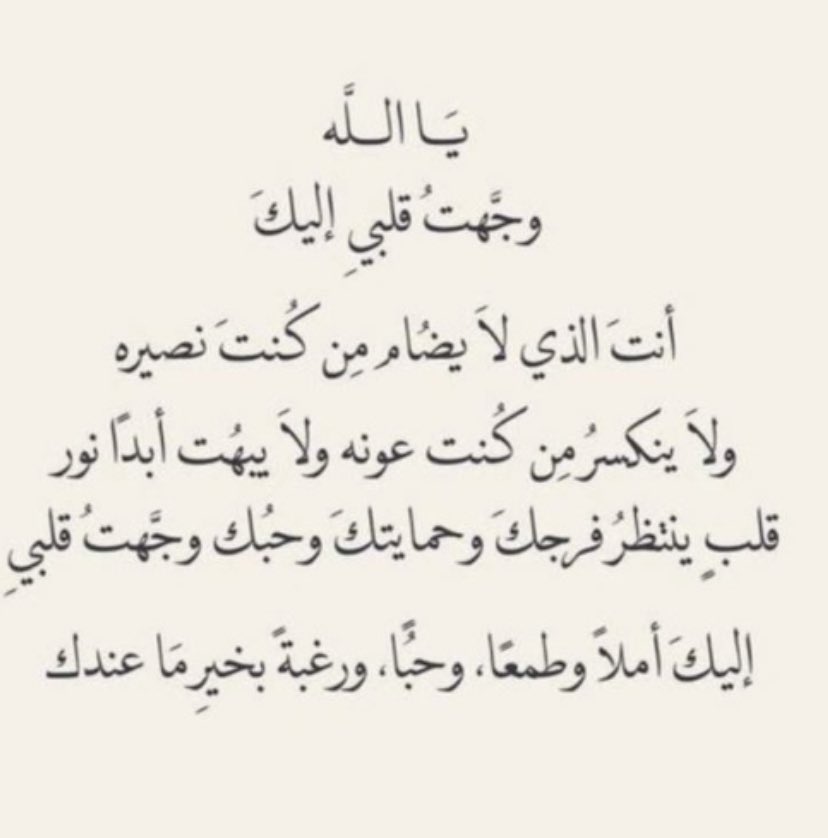 يَــا الــلَّه
وجَّهتُ قلبيِ إليكَ
أنتَ الذي لاَ يضُام مِن كُنتَ نصيره
ولاَ ينكسرُ مِن كُنت عونه ولاَ يبهُت أبدًا نور
قلبٍ ينتظرُ فرجكَ وحمايتكَ وحبُك وجَّهتُ قلبيِ
إليكَ أملاً وطمعًا، وحبًُا، ورغبةً بخيرِ مَا عندك